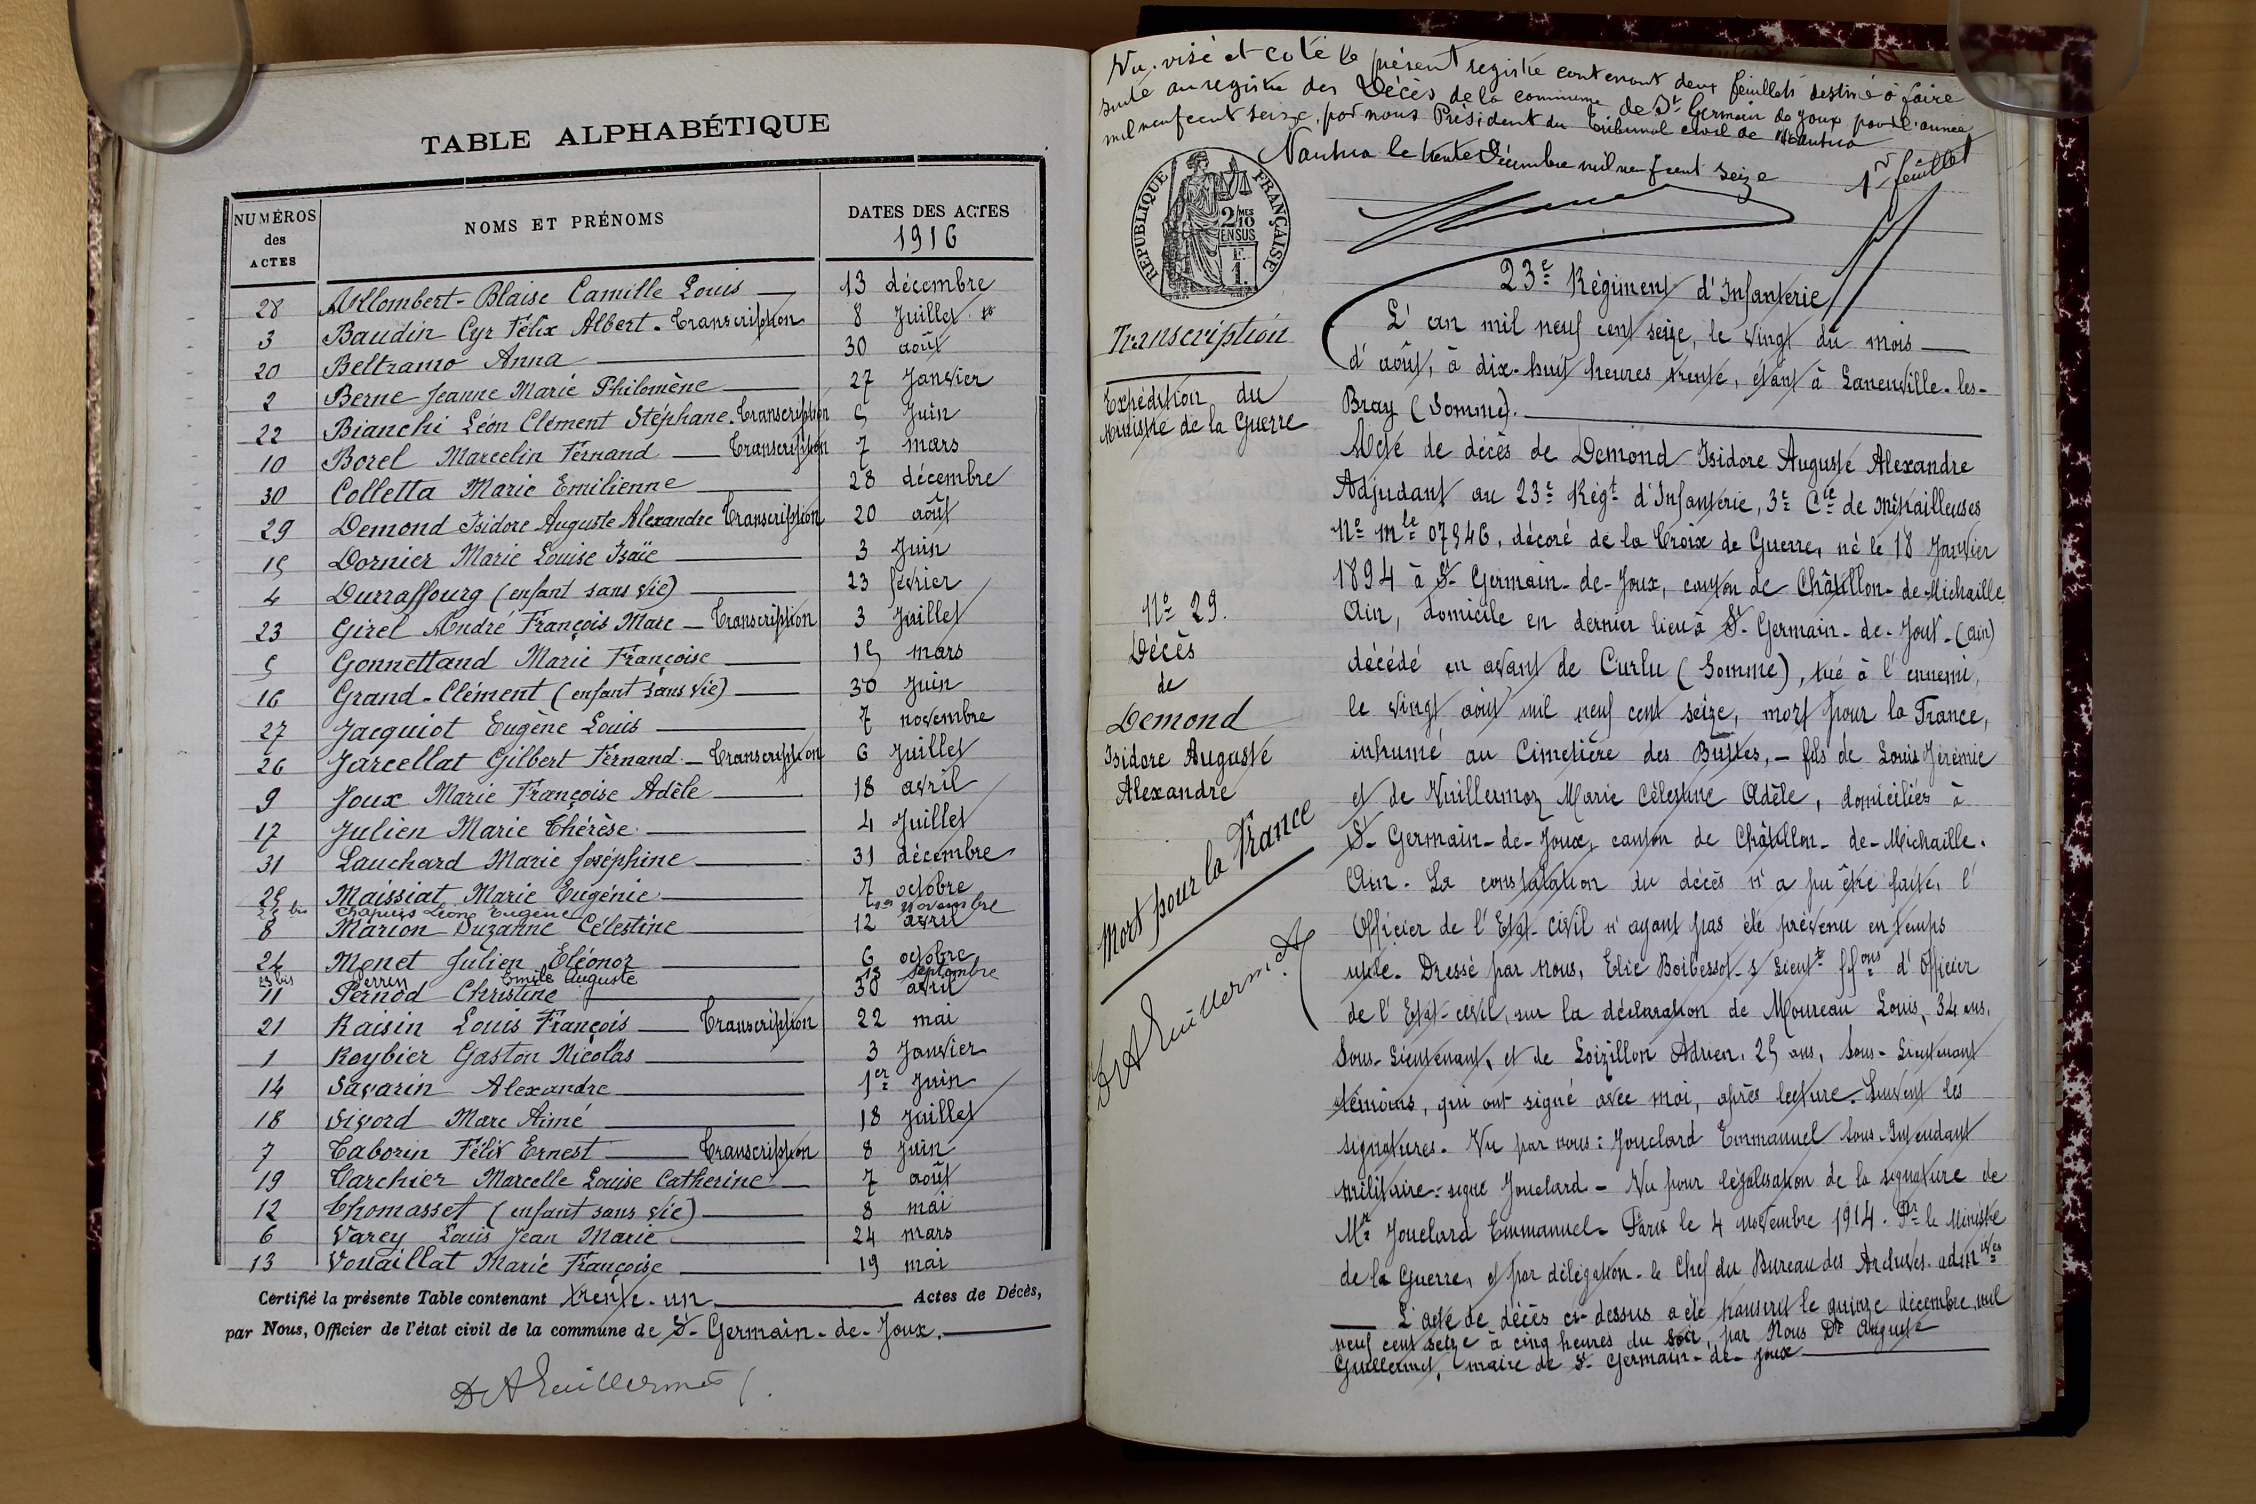 TABLE ALPHABÉTIQUE
NUMÉROS des ACTES
NOMS ET PRÉNOMS
DATES DES ACTES
1916
28 Allombert-Blaise Camille Louis 13 décembre
3 Baudin Cyr Félix Albert. Transcription 8 Juillet
20 Beltramo Anna 30 août
2 Berne Jeanne Marie Philomène 27 Janvier
22 Bianchi Léon Clément Stéphane. Transcription 5 Juin
10 Borel Marcelin Fernand — Transcription 7 mars
30 Colletta Marie Emilienne 28 décembre
29 Demond Isidore Auguste Alexandre Transcription 20 août
15 Dornier Marie Louise Isaïe 3 Juin
4 Durraffourg (enfant sans vie) 23 février
23 Girel André François Marc — Transcription 3 Juillet
5 Gonnettand Marie Françoise 15 mars
16 Grand-Clément (enfant sans vie) 30 Juin
27 Jacquiot Eugène Louis 7 novembre
26 Jarcellat Gilbert Fernand — Transcription 6 Juillet
9 Joux Marie Françoise Adèle 18 avril
17 Julien Marie Thérèse 4 Juillet
31 Lauchard Marie Joséphine 31 décembre
25 Maissiat Marie Eugénie 7 octobre
25 bis Chapuis Léone Eugène 1er novembre
8 Marion Suzanne Célestine 12 avril
24 Monet Julien Eléonor 6 octobre
23 bis Perren Emile Auguste 13 septembre
11 Pernod Christine 30 avril
21 Raisin Louis François — Transcription 22 mai
1 Reybier Gaston Nicolas 3 Janvier
14 Savarin Alexandre 1er Juin
18 Sivord Marc Aimé 18 Juillet
7 Taborin Félix Ernest — Transcription 8 Juin
19 Tarchier Marcelle Louise Catherine 7 août
12 Thomasset (enfant sans vie) 8 mai
6 Varey Louis Jean Marie 24 mars
13 Vouaillat Marie Françoise 19 mai
Certifié la présente Table contenant trente-un Actes de Décès,
par Nous, Officier de l'état civil de la commune de St-Germain-de-Joux.
Dr A Guillermet
Vu, visé et coté le présent registre contenant deux feuillets destiné à faire
suite au registre des Décès de la commune de St Germain de Joux pour l'année
mil neuf cent seize, par nous Président du Tribunal civil de Nantua
Nantua le trente Décembre mil neuf cent seize
1er feuillet
RÉPUBLIQUE FRANÇAISE
2/10 MES
EN SUS
F.
1.
Transcription
Expédition du
Ministre de la Guerre
N° 29.
Décès
de
Demond
Isidore Auguste
Alexandre
Mort pour la France
Dr A Guillermet
23e Régiment d'Infanterie
L'an mil neuf cent seize, le vingt du mois
d'août, à dix-huit heures trente, étant à Laneuville-les-
Bray (Somme).
Acte de décès de Demond Isidore Auguste Alexandre
Adjudant au 23e Régt d'Infanterie, 3e Cie de mitrailleuses
N° Mle 07546, décoré de la Croix de Guerre, né le 18 Janvier
1894 à St-Germain-de-Joux, canton de Châtillon-de-Michaille
Ain, domicilié en dernier lieu à St-Germain-de-Joux-(Ain)
décédé en avant de Curlu (Somme), tué à l'ennemi,
le vingt août mil neuf cent seize, mort pour la France,
inhumé au Cimetière des Buttes, - fils de Louis Jérémie
et de Vuillermoz Marie Célestine Adèle, domiciliés à
St-Germain-de-Joux, canton de Châtillon-de-Michaille.
Ain. La constatation du décès n'a pu être faite, l'
Officier de l'Etat-civil n'ayant pas été prévenu en temps
utile. Dressé par nous, Elie Boibessot-s Lieutt ffons d'Officier
de l'Etat-civil, sur la déclaration de Moureau Louis, 34 ans,
Sous-Lieutenant, et de Loizillon Adrien, 25 ans, Sous-Lieutenant
témoins, qui ont signé avec moi, après lecture. Suivent les
signatures. Vu par nous: Jouclard Emmanuel Sous-Intendant
militaire: signé Jouclard - Vu pour légalisation de la signature de
Mr Jouclard Emmanuel- Paris le 4 novembre 1914. Pr le Ministre
de la Guerre, et par délégation. le Chef du Bureau des Archives. admives
L'acte de décès ci-dessus a été transcrit le quinze décembre mil
neuf cent seize à cinq heures du soir, par Nous Dr Auguste
Guillermet, maire de St-Germain-de-Joux